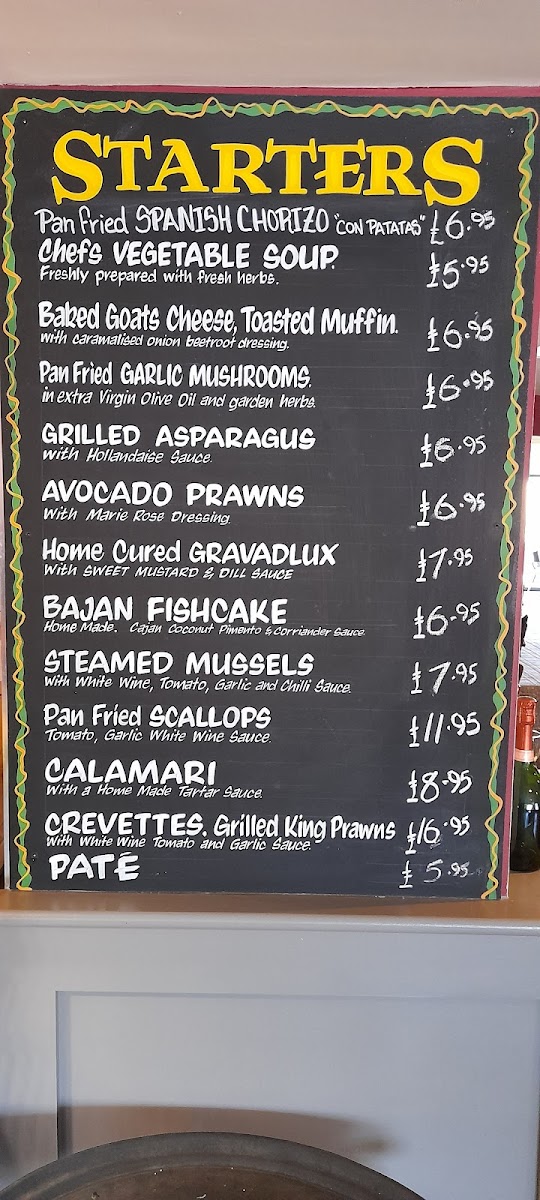 STARTERS
Pan fried SPANISH CHORIZO "CON PATATAS" £6.95
Chefs VEGETABLE SOUP. £5.95
Freshly prepared with fresh herbs.
Baked Goats Cheese, Toasted Muffin. £6.95
with caramalised onion beetroot dressing.
Pan Fried GARLIC MUSHROOMS. £6.95
in extra Virgin Olive Oil and garden herbs.
GRILLED ASPARAGUS £6.95
with Hollandaise Sauce.
AVOCADO PRAWNS £6.95
With Marie Rose Dressing.
Home Cured GRAVADLUX £7.95
With SWEET MUSTARD & DILL SAUCE
BAJAN FISHCAKE £6.95
Home Made. Cajan Coconut Pimento & Corriander Sauce.
STEAMED MUSSELS £7.95
With White Wine, Tomato, Garlic and Chilli Sauce.
Pan Fried SCALLOPS £11.95
Tomato, Garlic White Wine Sauce.
CALAMARI £8.95
With a Home Made Tartar Sauce.
CREVETTES. Grilled King Prawns £16.95
With White Wine Tomato and Garlic Sauce.
PATÉ £5.95